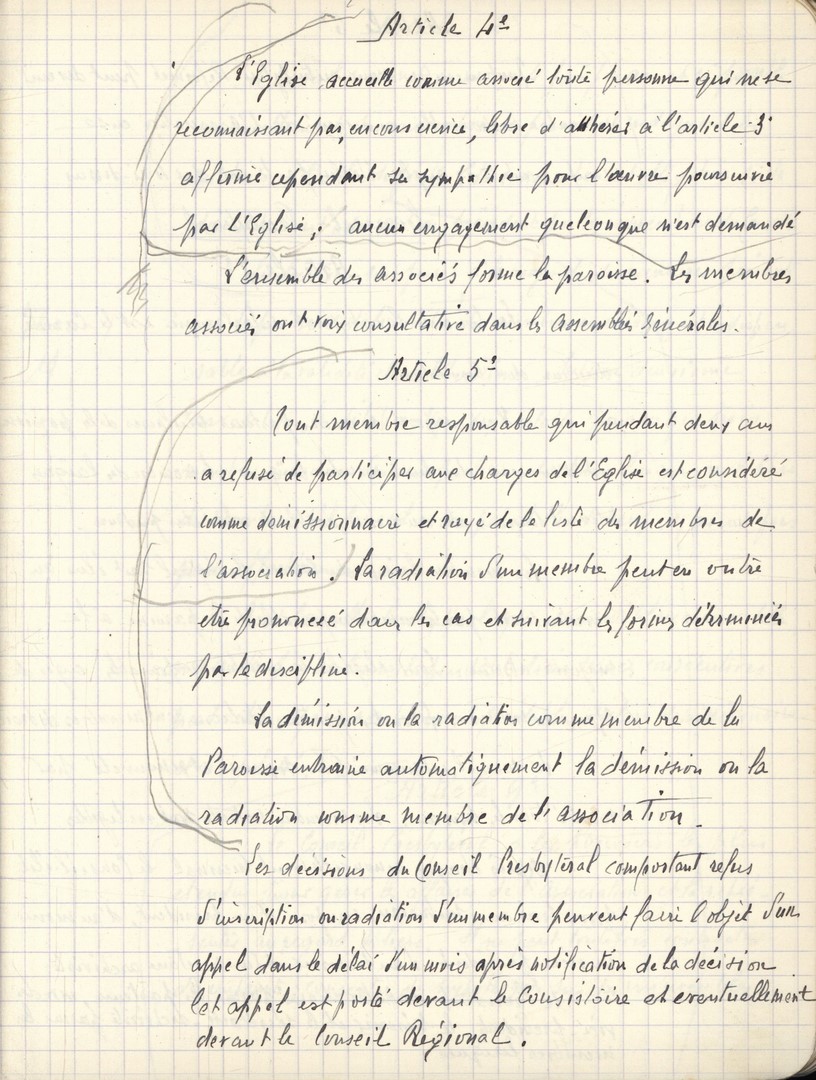 Article 4e
L'Eglise accueille comme associé toute personne qui ne se
reconnaissant pas, en conscience, libre d'adhérer à l'article 3
affirme cependant sa sympathie pour l'œuvre poursuivie
par l'Eglise; aucun engagement quelconque n'est demandé
L'ensemble des associés forme la paroisse. Les membres
associés ont voix consultative dans les Assemblées Générales.
Article 5e
Tout membre responsable qui pendant deux ans
a refusé de participer aux charges de l'Eglise est considéré
comme démissionnaire et rayé de la liste des membres de
l'association. La radiation d'un membre peut en outre
etre prononcée dans les cas et suivant les formes déterminées
par la discipline.
La démission ou la radiation comme membre de la
Paroisse entraine automatiquement la démission ou la
radiation comme membre de l'association.
Les décisions du Conseil Presbytéral comportant refus
d'inscription ou radiation d'un membre peuvent faire l'objet d'un
appel dans le délai d'un mois après notification de la décision
Cet appel est porté devant le Consistoire et éventuellement
devant le Conseil Régional.